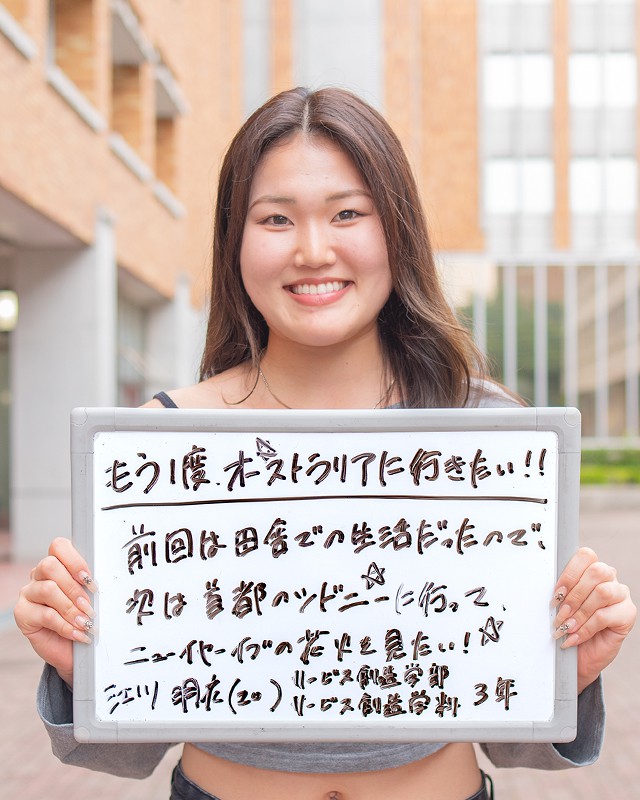 もう1度、オーストラリアに行きたい!!
前回は田舎での生活だったので、
次は首都のシドニーに行って、
ニューイヤーイブの花火を見たい!
江川 明衣(20) サービス創造学部
サービス創造学科 3年